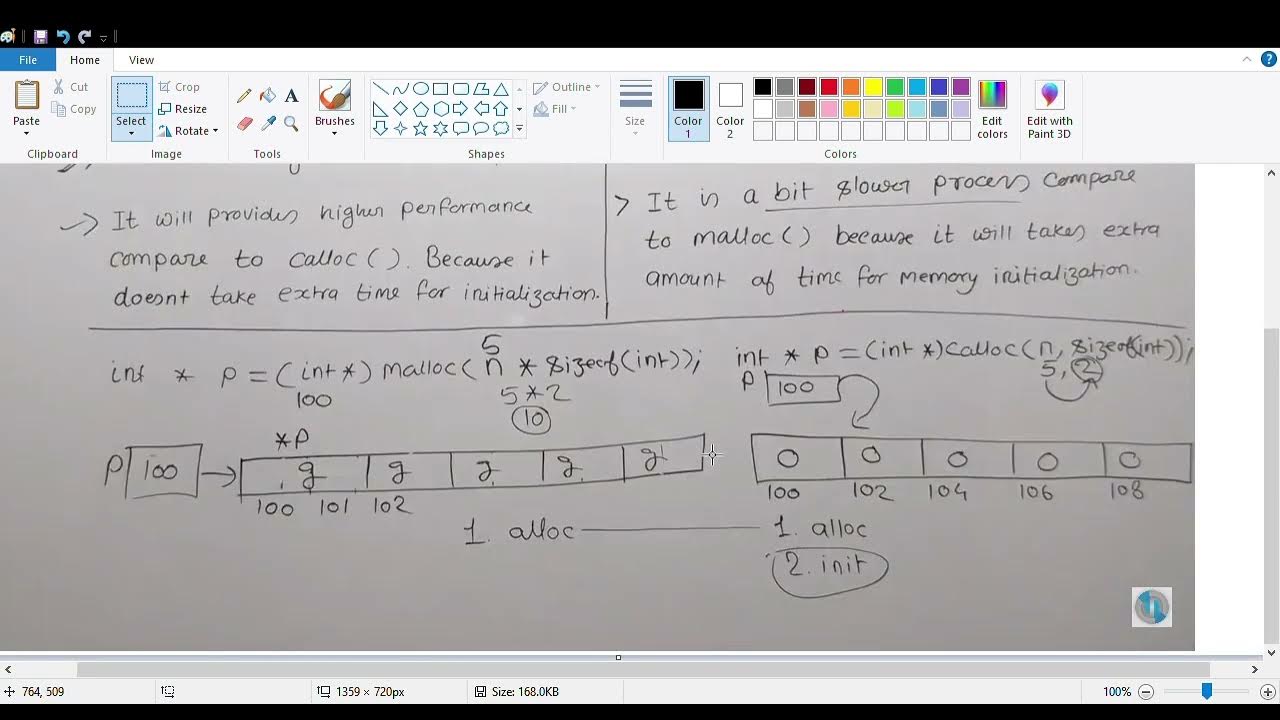 File Home View
Paste
Cut
Copy
Clipboard
Select
Crop
Resize
Rotate
Image
A
Tools
Brushes
Outline
Fill
Shapes
Size
Color 1
Color 2
Edit colors
Colors
Edit with Paint 3D
→ It will provides higher performance
compare to calloc(). Because it
doesnt take extra time for initialization.
> It is a bit slower process compare
to malloc() because it will takes extra
amount of time for memory initialization.
5
int * p = (int*) malloc(n * sizeof(int));
100 5*2
10
*p
p 100 → g g g g g
100 101 102
1. alloc
int * p = (int*) calloc(n, sizeof(int));
5, 2
p 100
0 0 0 0 0
100 102 104 106 108
1. alloc
2. init
764, 509
1359 × 720px
Size: 168.0KB
100%